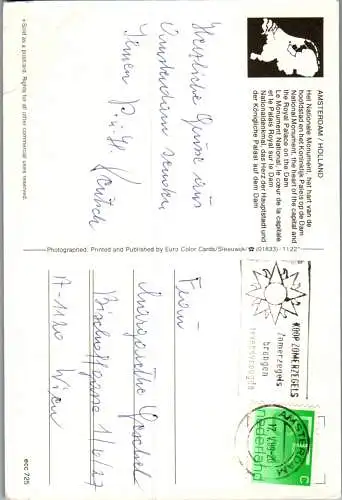 AMSTERDAM / HOLLAND
Het Nationale Monument, het hart van de
hoofdstad en het Koninklijk Paleis op de Dam
National Monument, the heart of the capital and
the Royal Palace on the Dam
Le Monument National, le coeur de la capitale
et le Palais Royal sur le Dam
Nationaldenkmal, das Herz der Hauptstadt und
der Königliche Palast auf dem Dam
Herzliche Grüße aus
Amsterdam senden
Ihnen
• Sold as a postcard. Rights for all other commercial uses reserved.
Photographed, Printed and Published by Euro Color Cards/Sleeuwijk/☎ (01833) - 1122*
KOOP ZOMERZEGELS
zomerzegels
brengen
levensvreugde
AMSTERDAM
nederland
c
Frau
Margarethe
A-1120 Wien
ecc 725